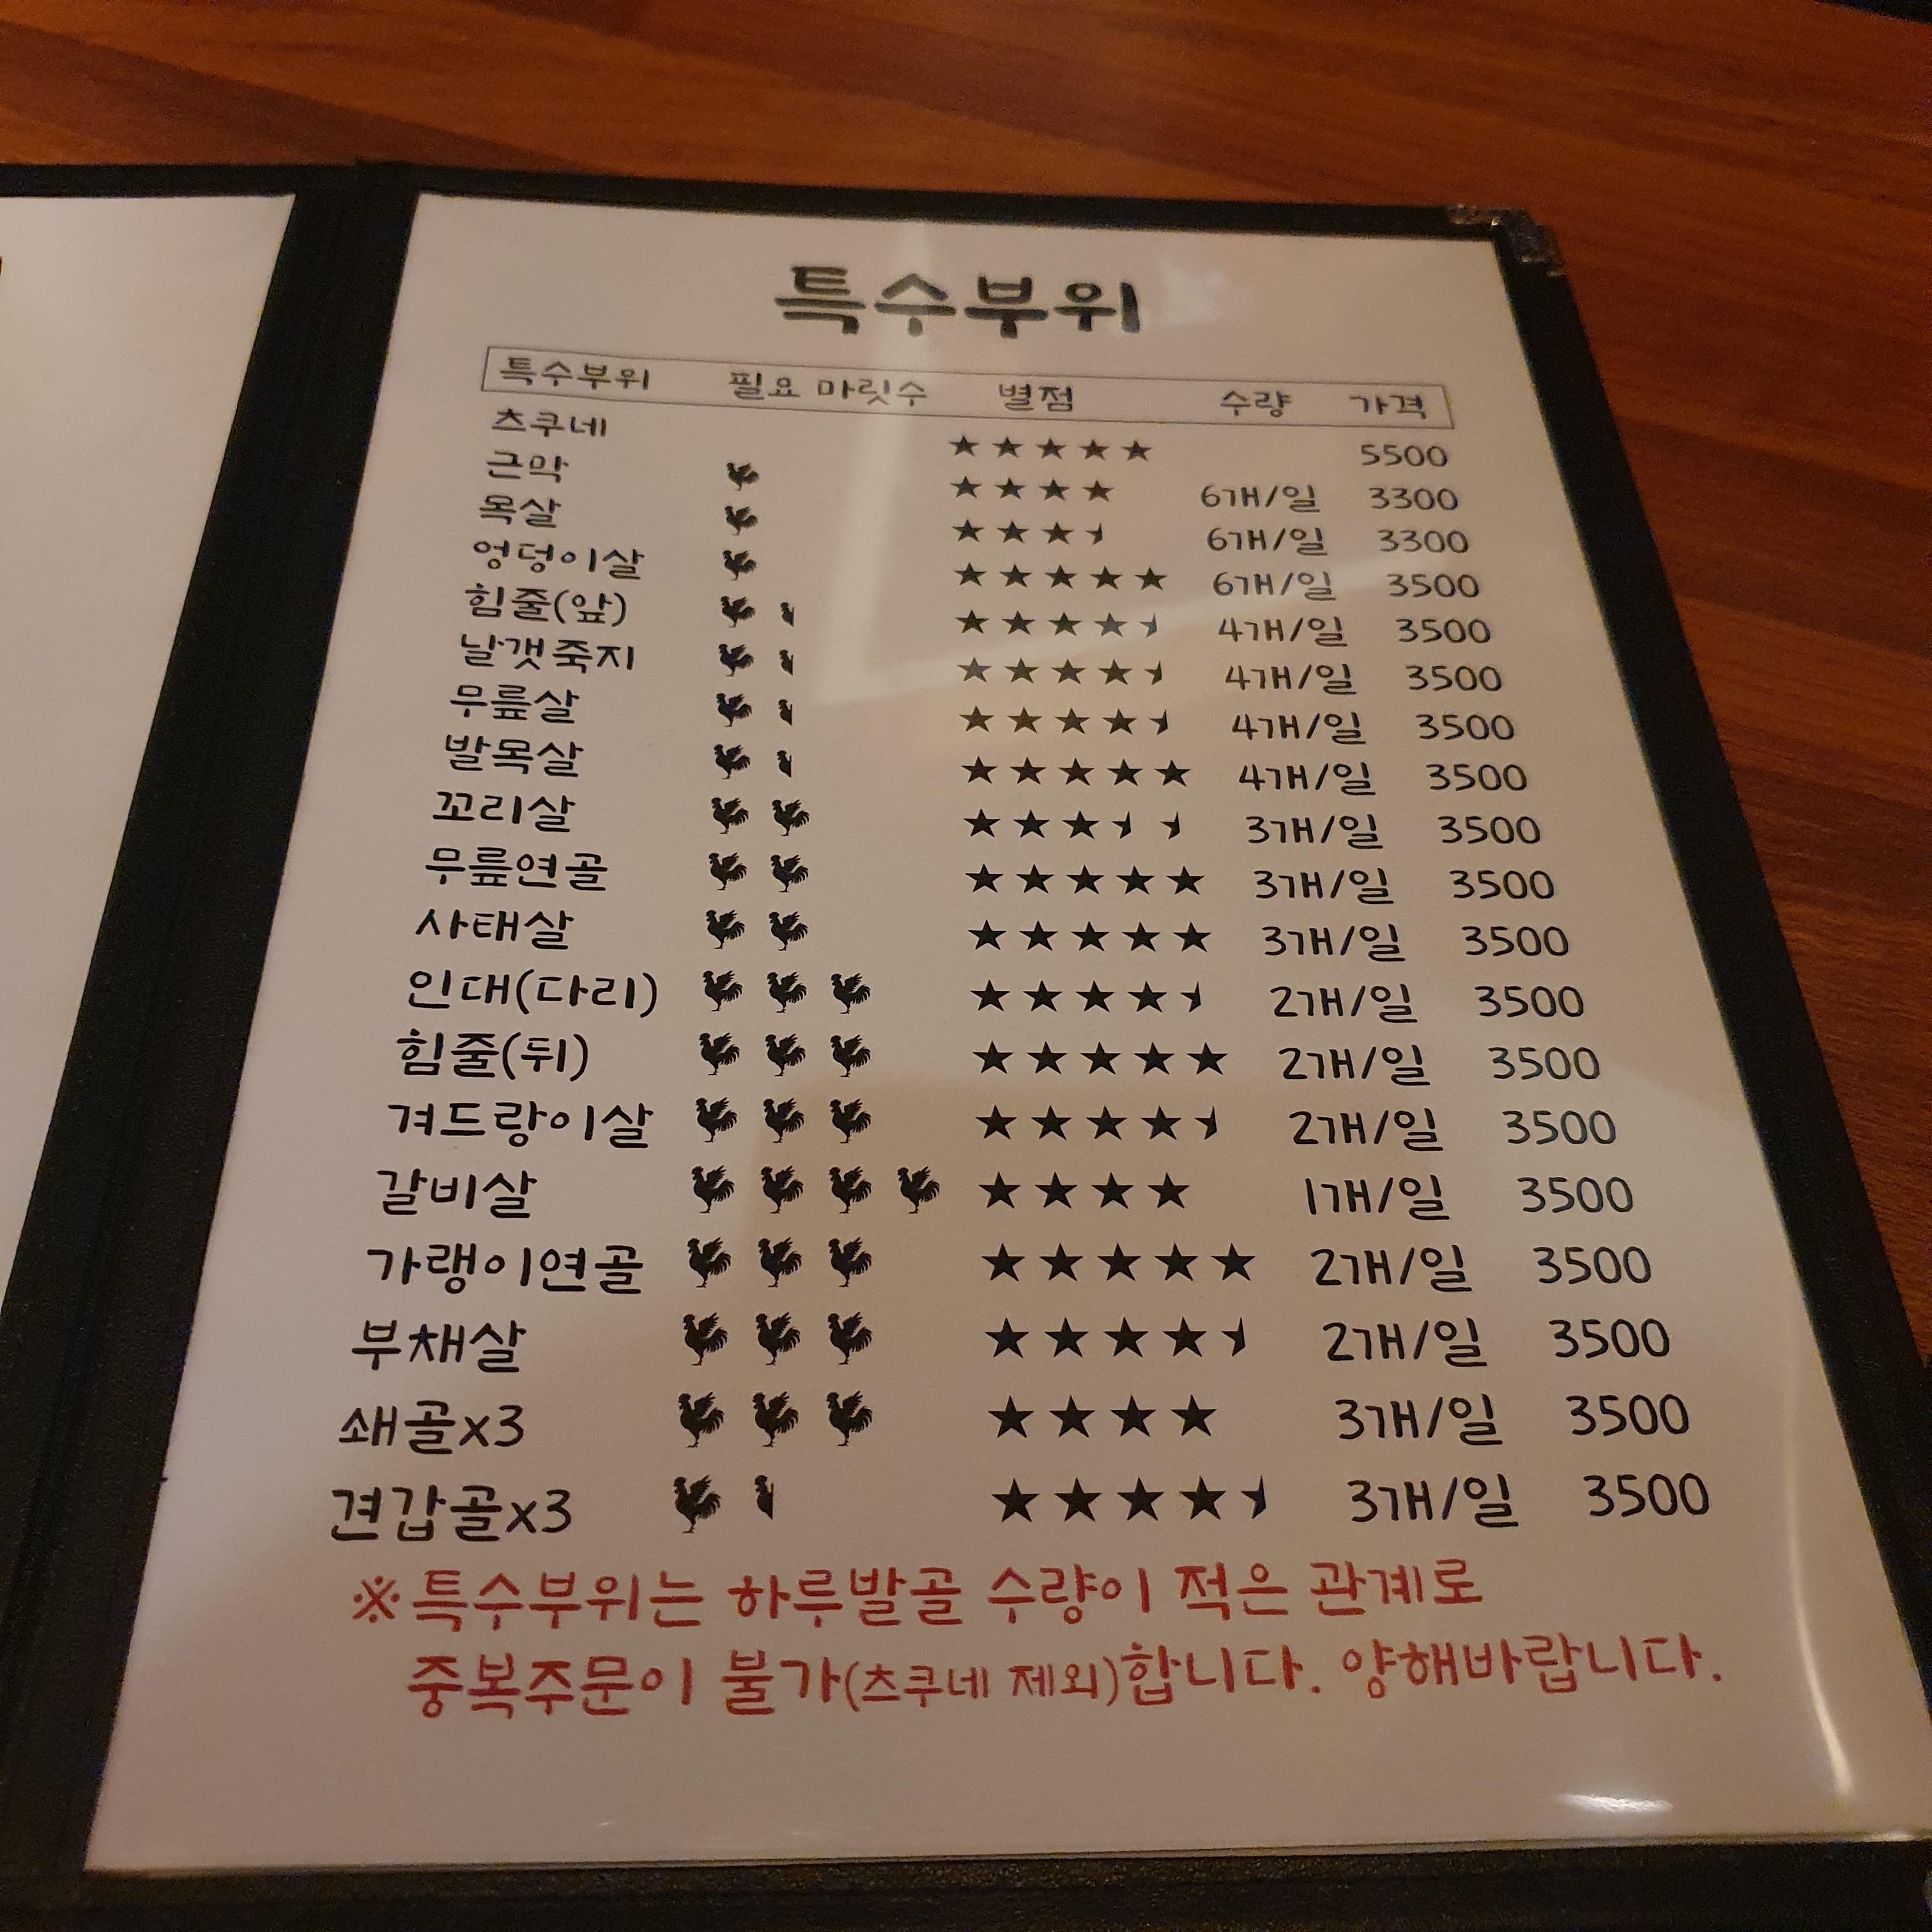 특수부위
특수부위 필요 마릿수 별점 수량 가격
츠쿠네 ★★★★★ 5500
근막 ★★★★ 6개/일 3300
목살 ★★★ 6개/일 3300
엉덩이살 ★★★★★ 6개/일 3500
힘줄(앞) ★★★★ 4개/일 3500
날갯죽지 ★★★★ 4개/일 3500
무릎살 ★★★★ 4개/일 3500
발목살 ★★★★★ 4개/일 3500
꼬리살 ★★★ 3개/일 3500
무릎연골 ★★★★★ 3개/일 3500
사태살 ★★★★★ 3개/일 3500
인대(다리) ★★★★ 2개/일 3500
힘줄(뒤) ★★★★★ 2개/일 3500
겨드랑이살 ★★★★ 2개/일 3500
갈비살 ★★★★ 1개/일 3500
가랭이연골 ★★★★★ 2개/일 3500
부채살 ★★★★ 2개/일 3500
쇄골x3 ★★★★ 3개/일 3500
견갑골x3 ★★★★ 3개/일 3500
※특수부위는 하루발골 수량이 적은 관계로
중복주문이 불가(츠쿠네 제외)합니다. 양해바랍니다.